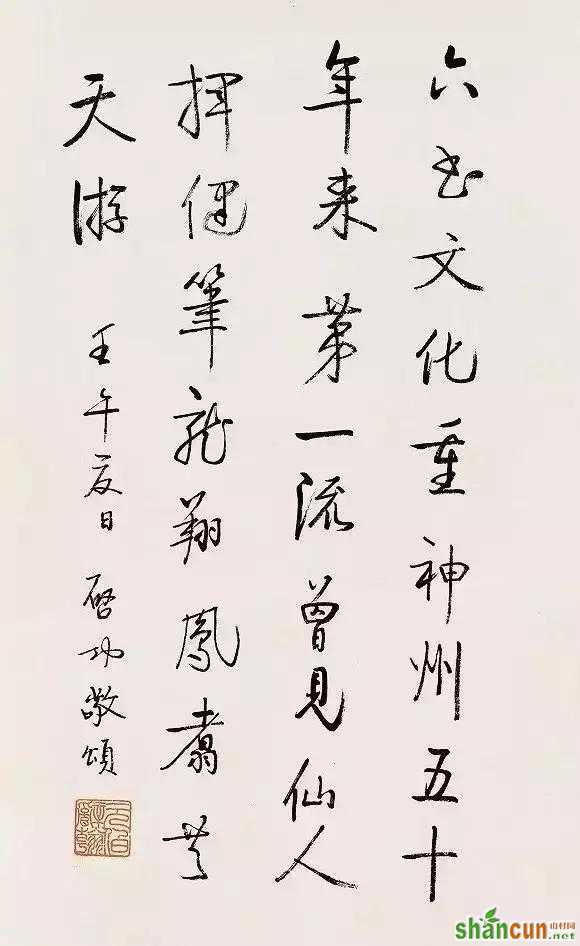 六书文化重神州五十
年来第一流曾見仙人
揮健筆龍翔鳳翥
天游 壬午夏日 啓功敬頌
shancun 山村网
.net